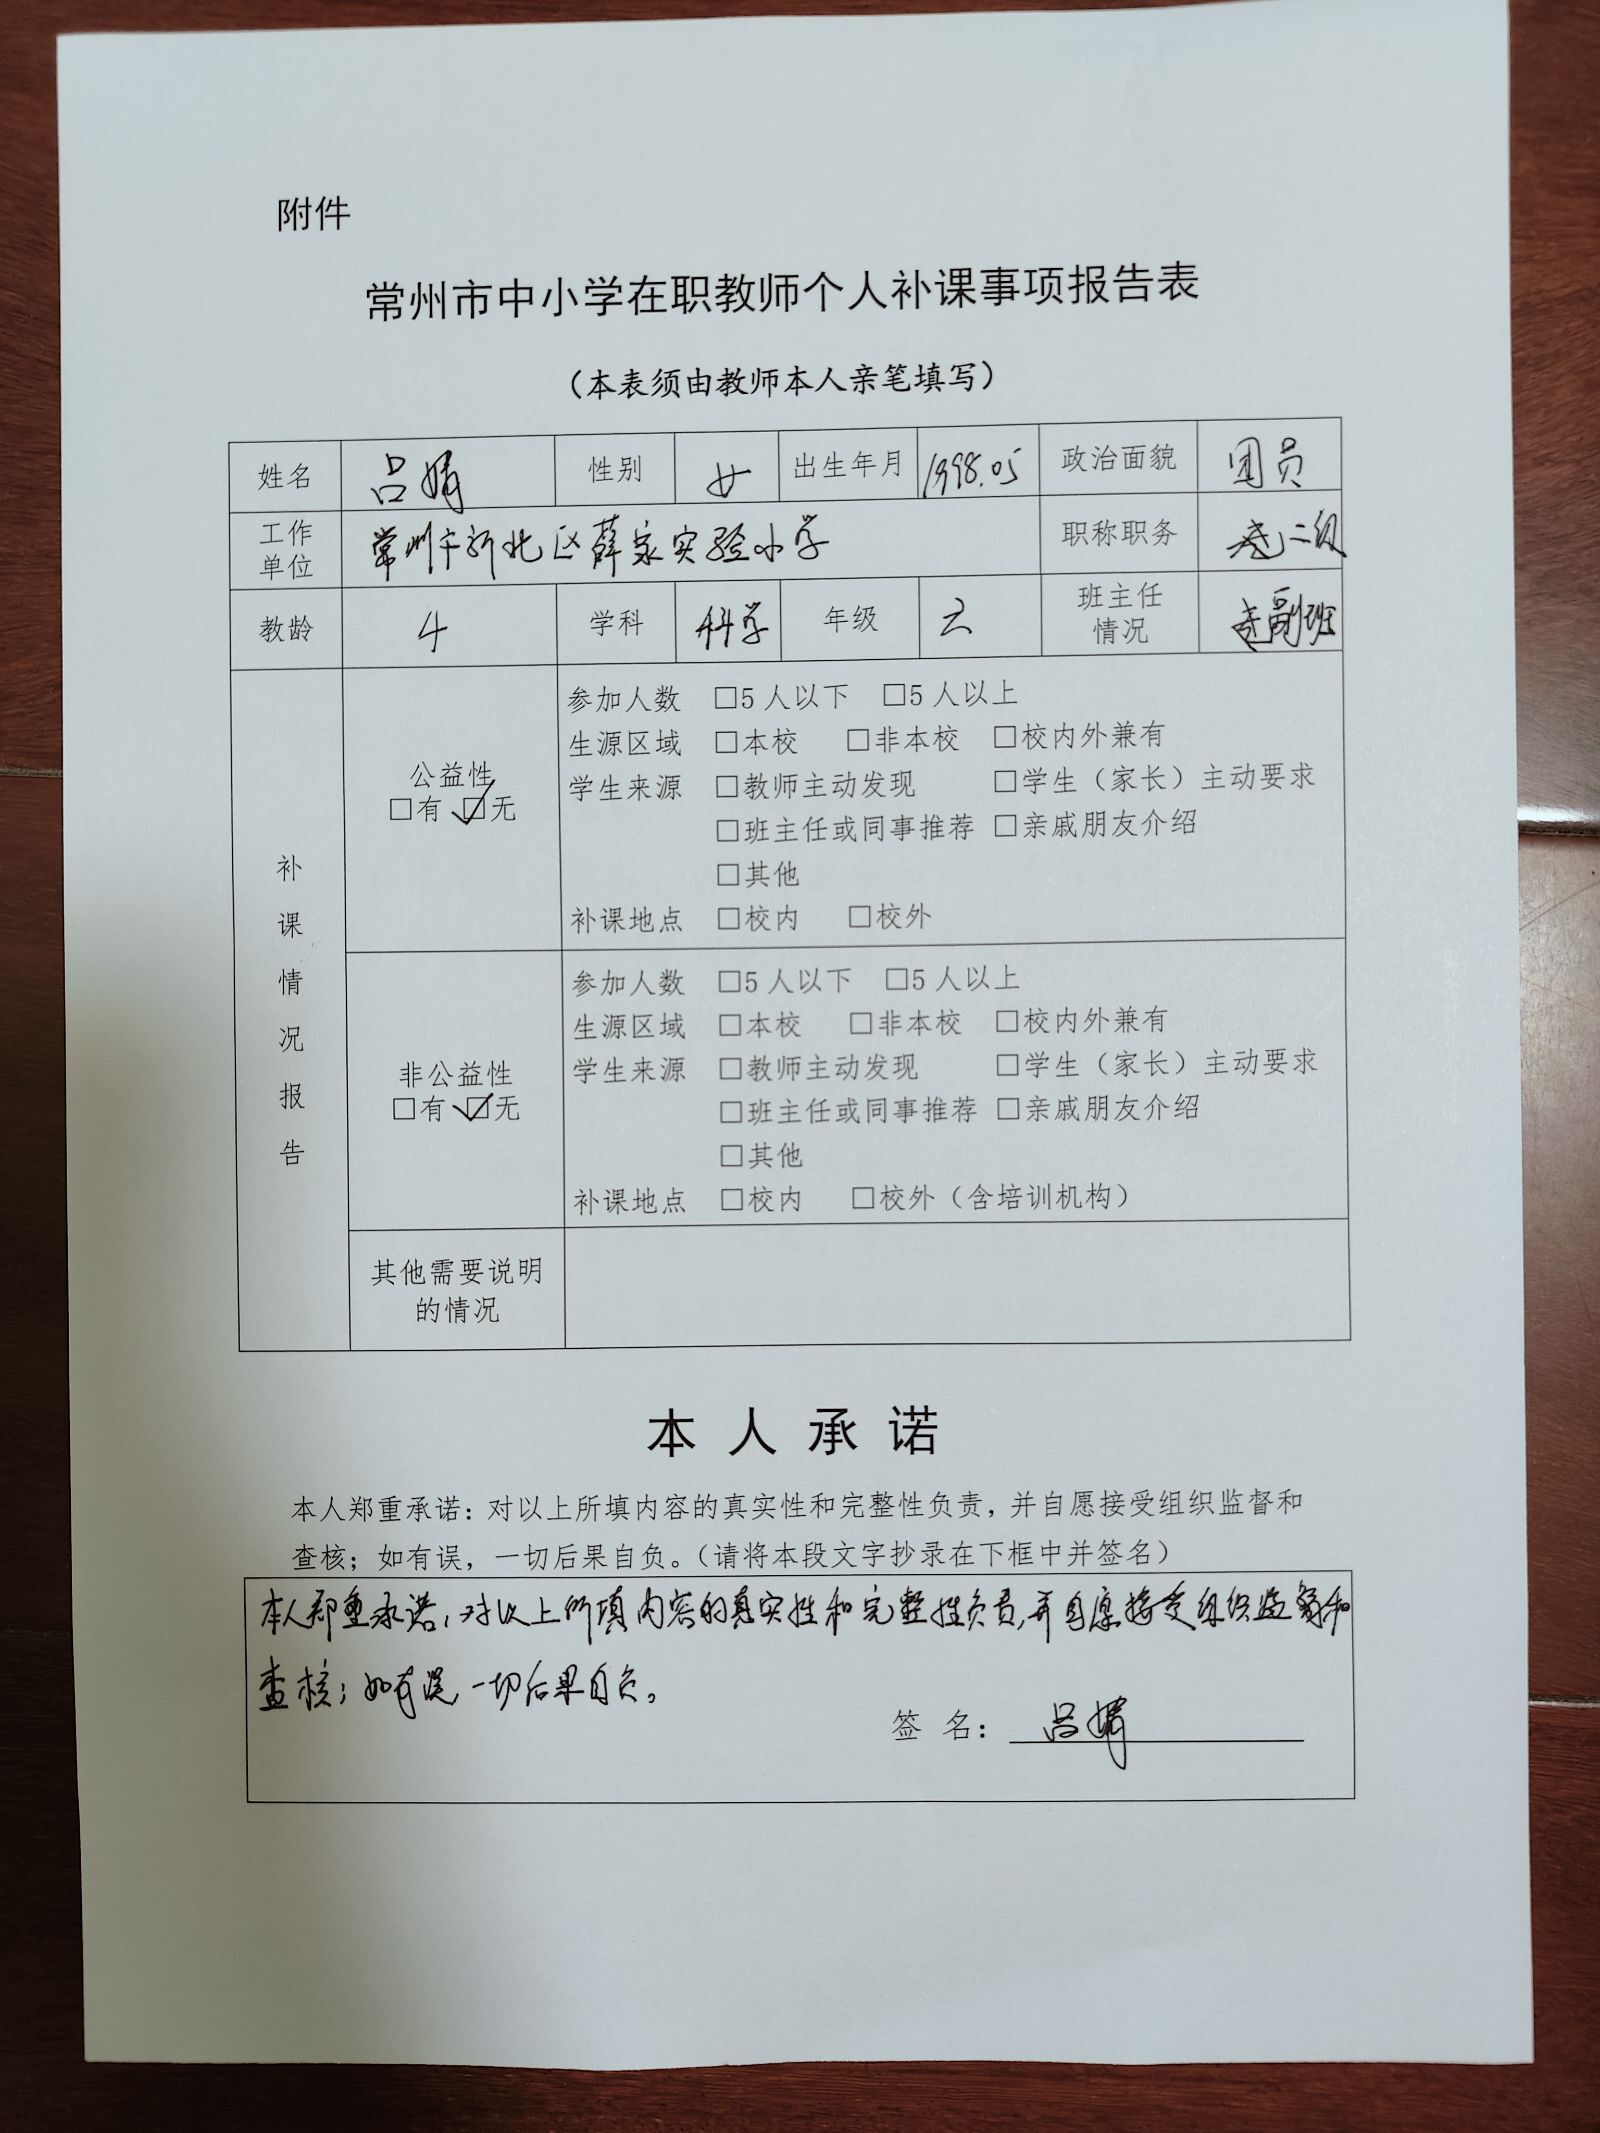 附件
常州市中小学在职教师个人补课事项报告表
（本表须由教师本人亲笔填写）
姓名 吕婧 性别 女 出生年月 1998.05 政治面貌 团员
工作单位 常州市新北区薛家实验小学 职称职务 二级
教龄 4 学科 科学 年级 班主任情况 副班
补课情况报告
公益性
□有 ☑无
参加人数 □5人以下 □5人以上
生源区域 □本校 □非本校 □校内外兼有
学生来源 □教师主动发现 □学生（家长）主动要求
□班主任或同事推荐 □亲戚朋友介绍
□其他
补课地点 □校内 □校外
非公益性
□有 ☑无
参加人数 □5人以下 □5人以上
生源区域 □本校 □非本校 □校内外兼有
学生来源 □教师主动发现 □学生（家长）主动要求
□班主任或同事推荐 □亲戚朋友介绍
□其他
补课地点 □校内 □校外（含培训机构）
其他需要说明
的情况
本人承诺
本人郑重承诺：对以上所填内容的真实性和完整性负责，并自愿接受组织监督和
查核；如有误，一切后果自负。（请将本段文字抄录在下框中并签名）
本人郑重承诺，对以上所填内容的真实性和完整性负责，并自愿接受组织监督和
查核；如有误，一切后果自负。
签 名： 吕婧